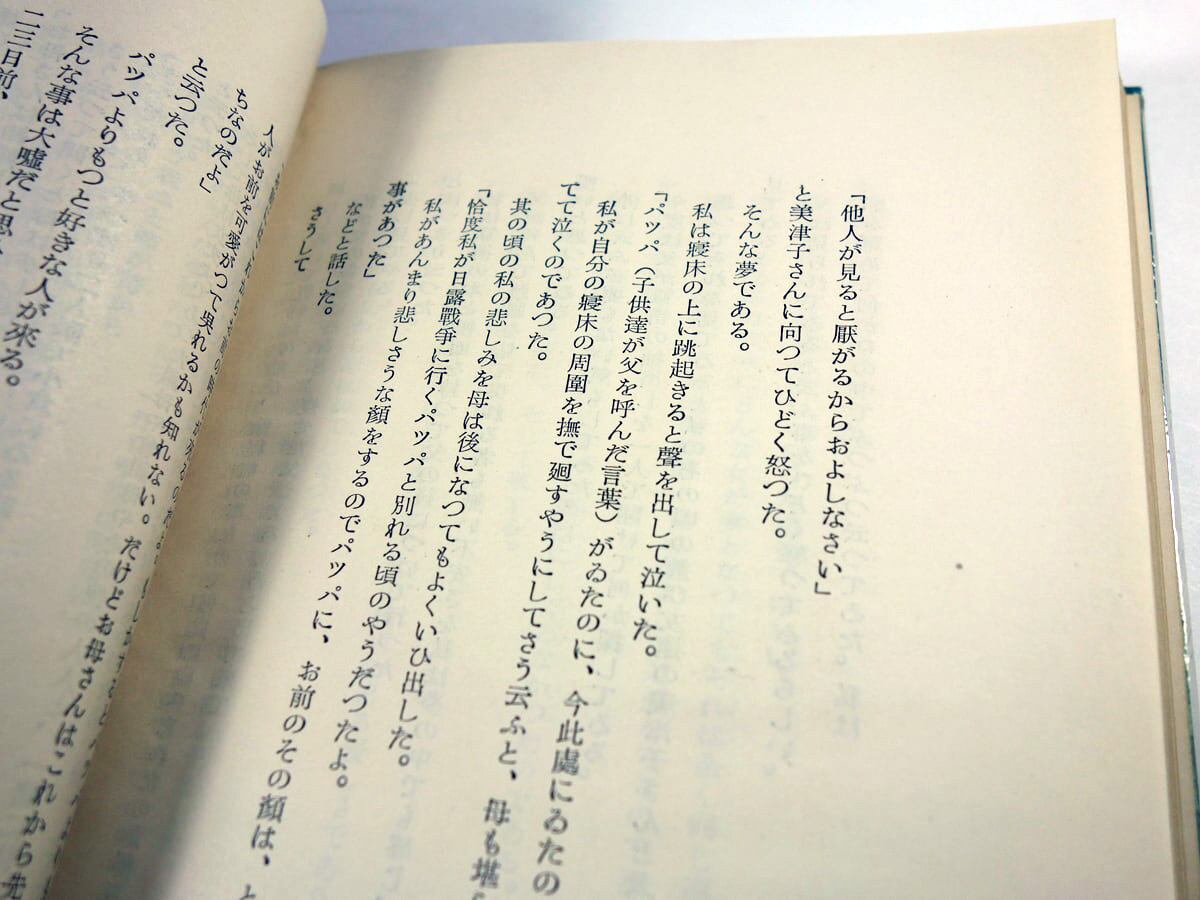 「他人が見ると厭がるからおよしなさい」
と美津子さんに向つてひどく怒つた。
そんな夢である。
私は寝床の上に跳起きると聲を出して泣いた。
「パッパ（子供達が父を呼んだ言葉）がゐたのに、今此處にゐたの
私が自分の寝床の周圍を撫で廻すやうにしてさう云ふと、母も堪
てて泣くのであつた。
其の頃の私の悲しみを母は後になつてもよくいひ出した。
「恰度私が日露戰爭に行くパッパと別れる頃のやうだつたよ。
私があんまり悲しさうな顔をするのでパッパに、お前のその顔は、
事があつた」
などと話した。
さうして
人がお前を可愛がつて呉れるかも知れない。だけどお母さんはこれから先
ちなのだよ」
と云つた。
パッパよりもつと好きな人が來る。
そんな事は大嘘だと思
二三日前、